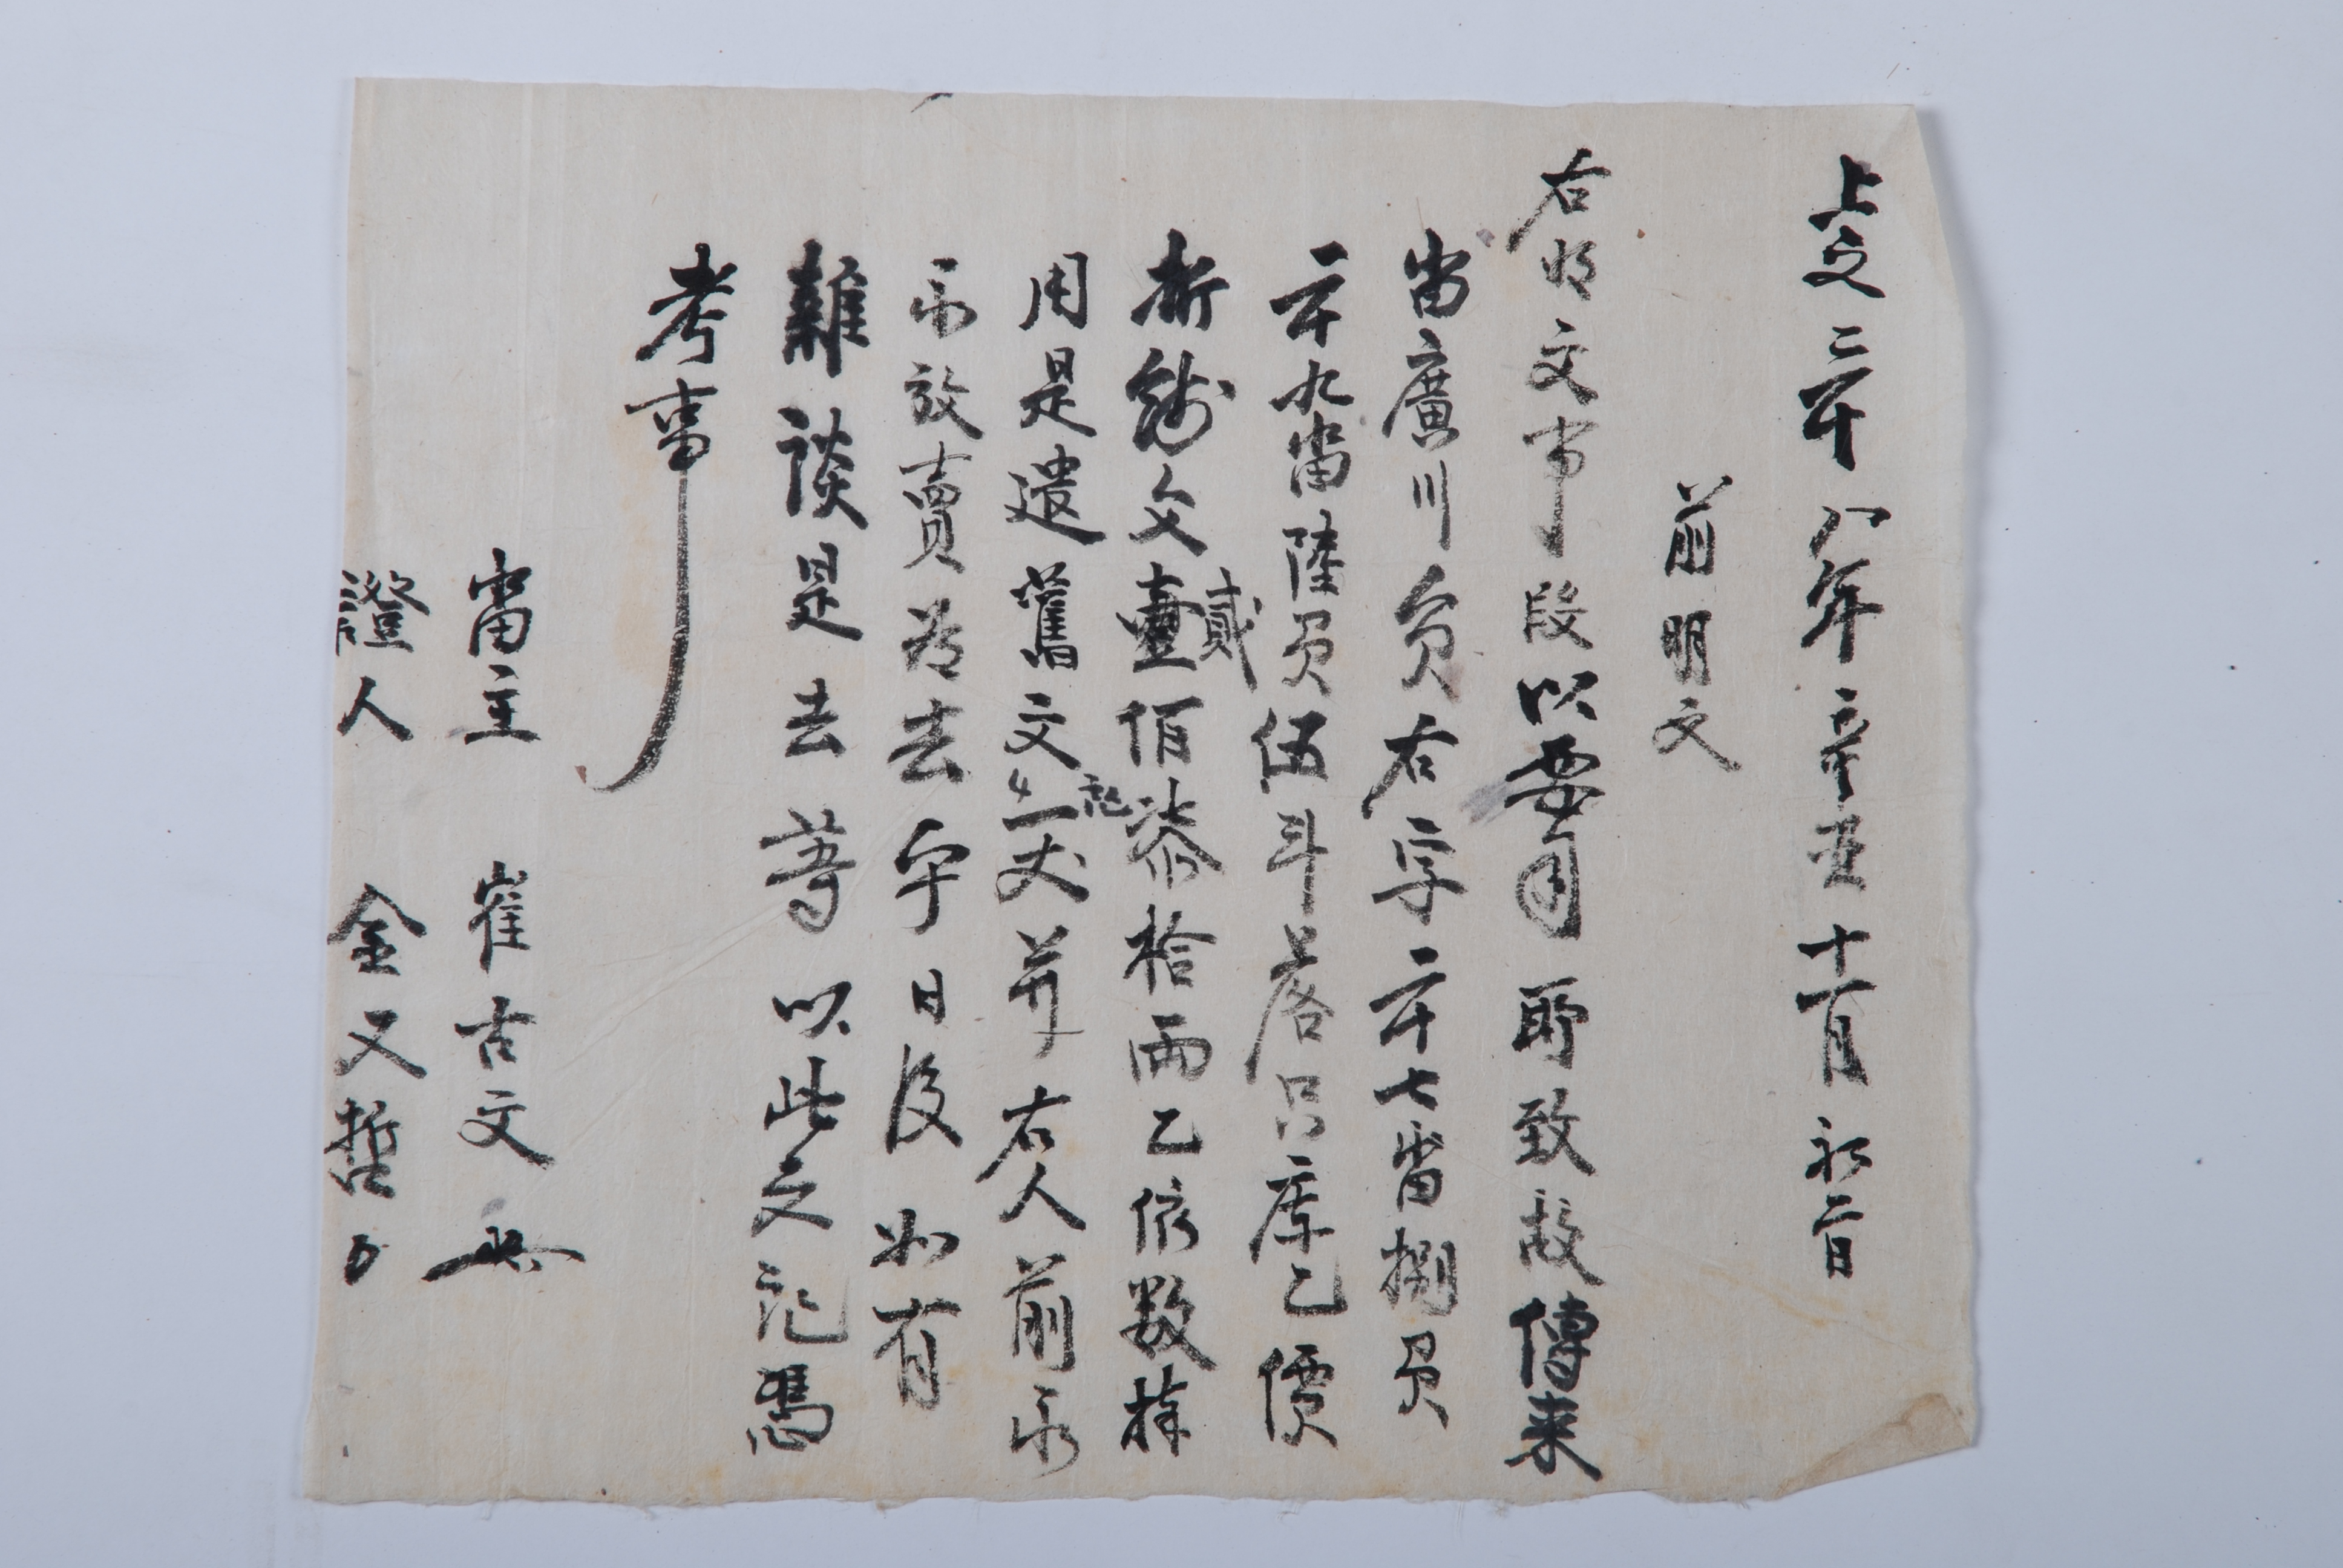 上之二十八年辛卯十一月初二日
前明文
右明文事段以要用所致故傳来
畓廣川員右字二十七畓捌負
二十九畓陸負伍斗落只庫乙價
折錢文壹貳佰柒拾両乙依数捧
用是遣舊文記一丈并右人前永
永放賣為去乎日後如有
雜談是去等以此文記憑
考事
畓主 崔古文
證人 金又哲